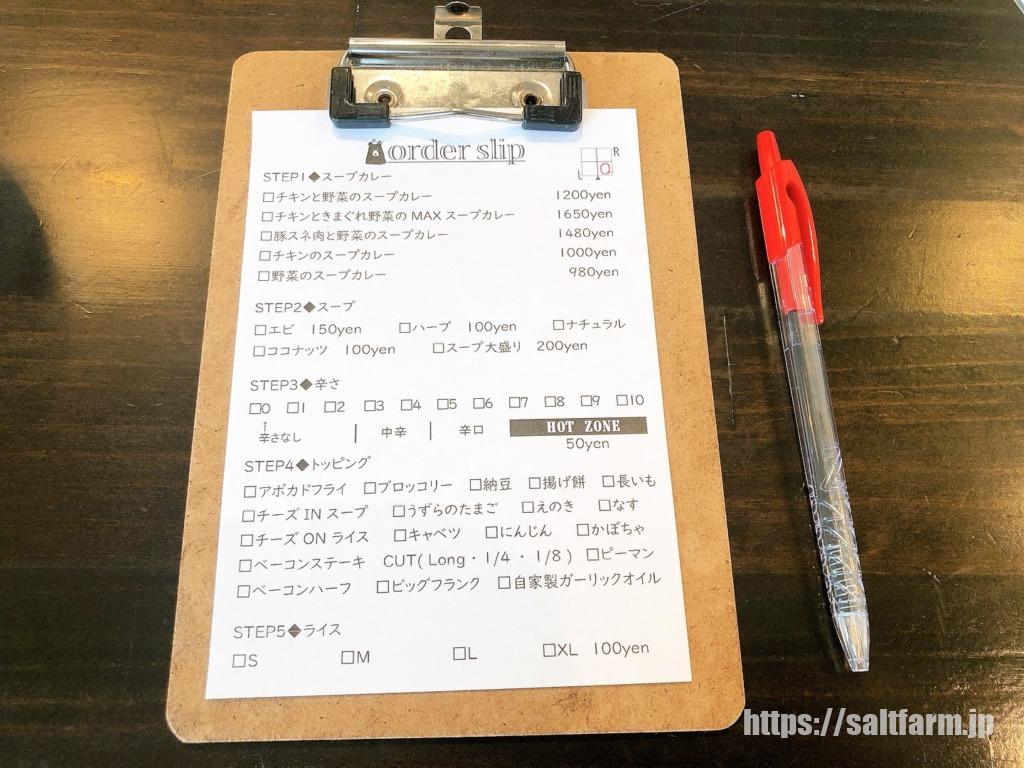 order slip
R
L
STEP1◆スープカレー
□チキンと野菜のスープカレー 1200yen
□チキンときまぐれ野菜のMAXスープカレー 1650yen
□豚スネ肉と野菜のスープカレー 1480yen
□チキンのスープカレー 1000yen
□野菜のスープカレー 980yen
STEP2◆スープ
□エビ 150yen □ハーブ 100yen □ナチュラル
□ココナッツ 100yen □スープ大盛り 200yen
STEP3◆辛さ
□0 □1 □2 □3 □4 □5 □6 □7 □8 □9 □10
↑
辛さなし | 中辛 | 辛口 HOT ZONE
50yen
STEP4◆トッピング
□アボカドフライ □ブロッコリー □納豆 □揚げ餅 □長いも
□チーズINスープ □うずらのたまご □えのき □なす
□チーズONライス □キャベツ □にんじん □かぼちゃ
□ベーコンステーキ CUT( Long・1/4・1/8 ) □ピーマン
□ベーコンハーフ □ビッグフランク □自家製ガーリックオイル
STEP5◆ライス
□S □M □L □XL 100yen
https://saltfarm.jp